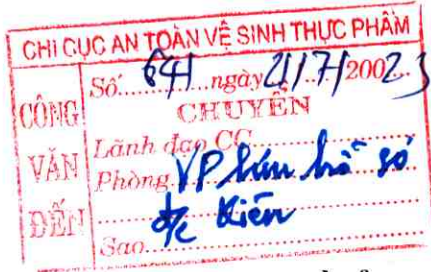 CHI CỤC AN TOÀN VỆ SINH THỰC PHẨM
CÔNG VĂN ĐẾN
Số 641 ngày 21/7/20023
CHUYỂN
Lãnh đạo CC
Phòng VP lưu hồ sơ
đ/c Kiên
Sao